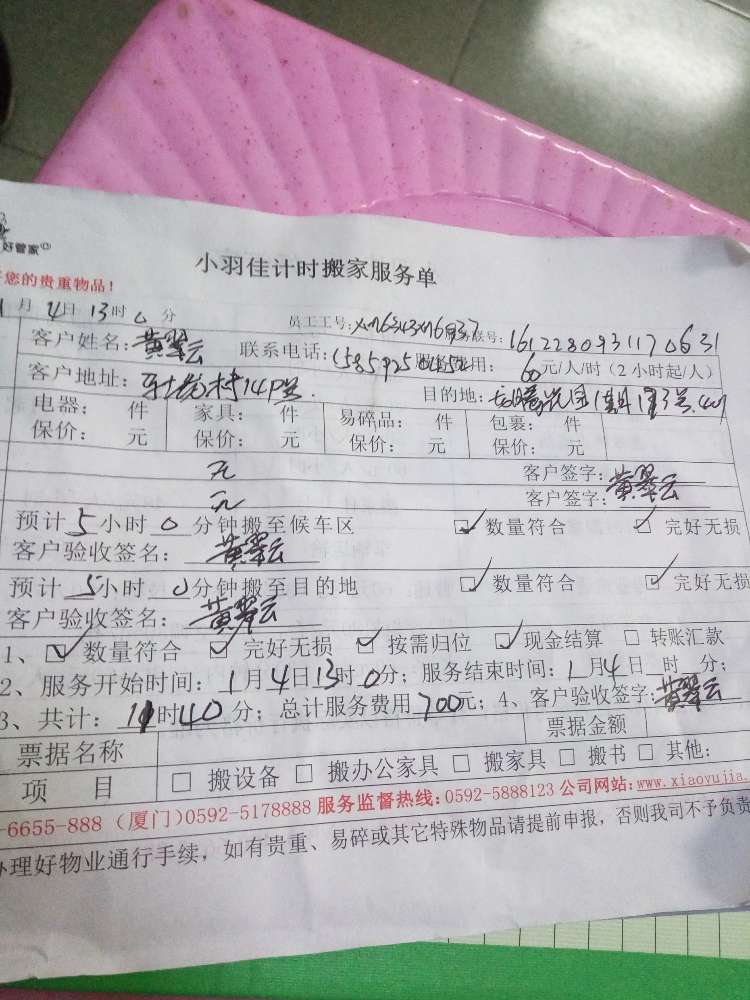 好管家
您的贵重物品！
小羽佳计时搬家服务单
月4日13时0分
员工工号: 联号:1612280931170631
客户姓名:黄翠云 联系电话: 用: 60元/人/时（2小时起/人）
客户地址: 目的地:
电器： 件 家具： 件 易碎品： 件 包裹： 件
保价： 元 保价： 元 保价： 元 保价： 元
元 客户签字:黄翠云
元 客户签字:
预计5小时0分钟搬至候车区 ☑数量符合 ☑完好无损
客户验收签名：黄翠云
预计5小时0分钟搬至目的地 ☑数量符合 ☑完好无损
客户验收签名：黄翠云
1、☑数量符合 ☑完好无损 ☑按需归位 ☑现金结算 □转账汇款
2、服务开始时间：1月4日13时0分；服务结束时间：1月4日 时 分；
3、共计： 时40分；总计服务费用700元；4、客户验收签字:黄翠云
票据名称 票据金额
项 目 □搬设备 □搬办公家具 □搬家具 □搬书 □其他：
-6655-888（厦门）0592-5178888 服务监督热线:0592-5888123 公司网站:www.xiaoyujia.
办理好物业通行手续，如有贵重、易碎或其它特殊物品请提前申报，否则我司不予负责